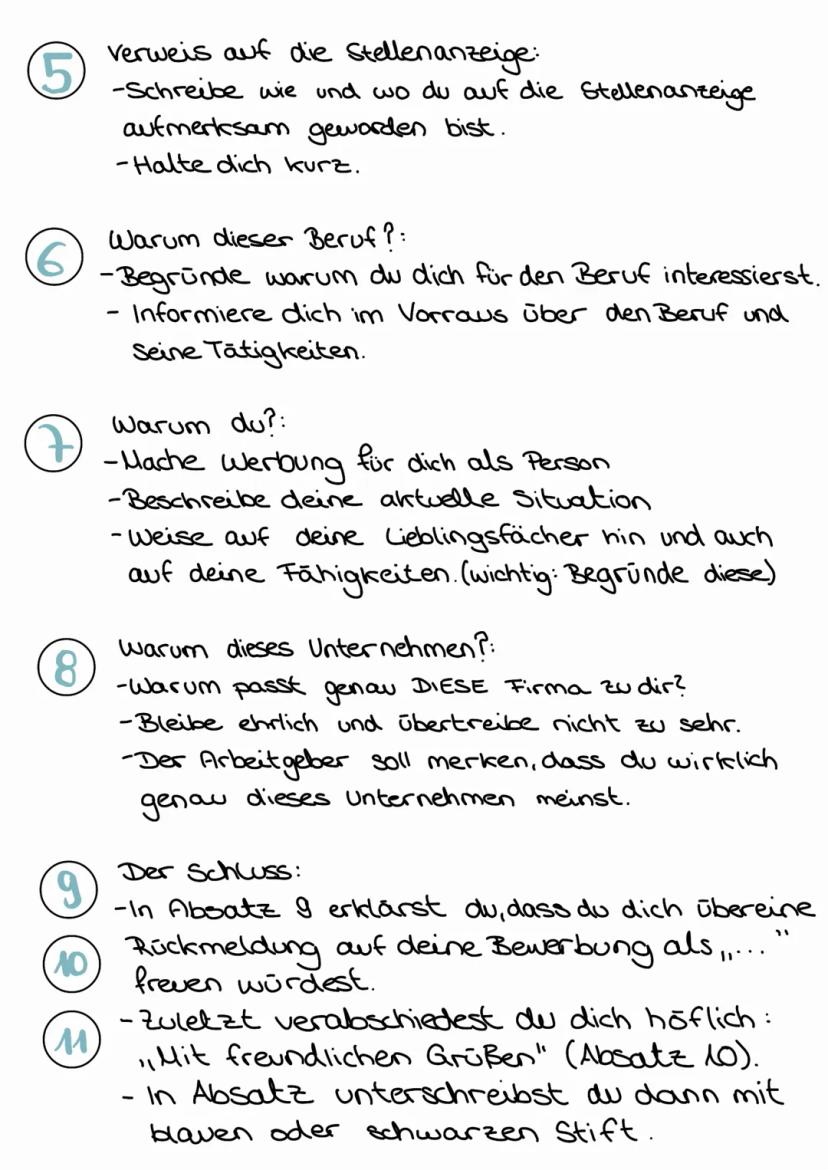 5 Verweis auf die Stellenanzeige:
-Schreibe wie und wo du auf die Stellenanzeige
aufmerksam geworden bist.
-Halte dich kurz.
6 Warum dieser Beruf?:
-Begründe warum du dich für den Beruf interessierst.
- Informiere dich im Vorraus über den Beruf und
seine Tätigkeiten.
7 Warum du?:
-Mache Werbung für dich als Person
-Beschreibe deine aktuelle Situation
-Weise auf deine Lieblingsfächer hin und auch
auf deine Fähigkeiten.(wichtig: Begründe diese)
8 Warum dieses Unternehmen?:
-Warum passt genau DIESE Firma zu dir?
-Bleibe ehrlich und übertreibe nicht zu sehr.
-Der Arbeitgeber soll merken, dass du wirklich
genau dieses Unternehmen meinst.
9 Der Schluss:
-In Absatz 9 erklärst du, dass du dich über eine
10 Rückmeldung auf deine Bewerbung als „..."
freuen würdest.
11 -Zuletzt verabschiedest du dich höflich:
„Mit freundlichen Grüßen" (Absatz 10).
- In Absatz unterschreibst du dann mit
blauen oder schwarzen Stift.